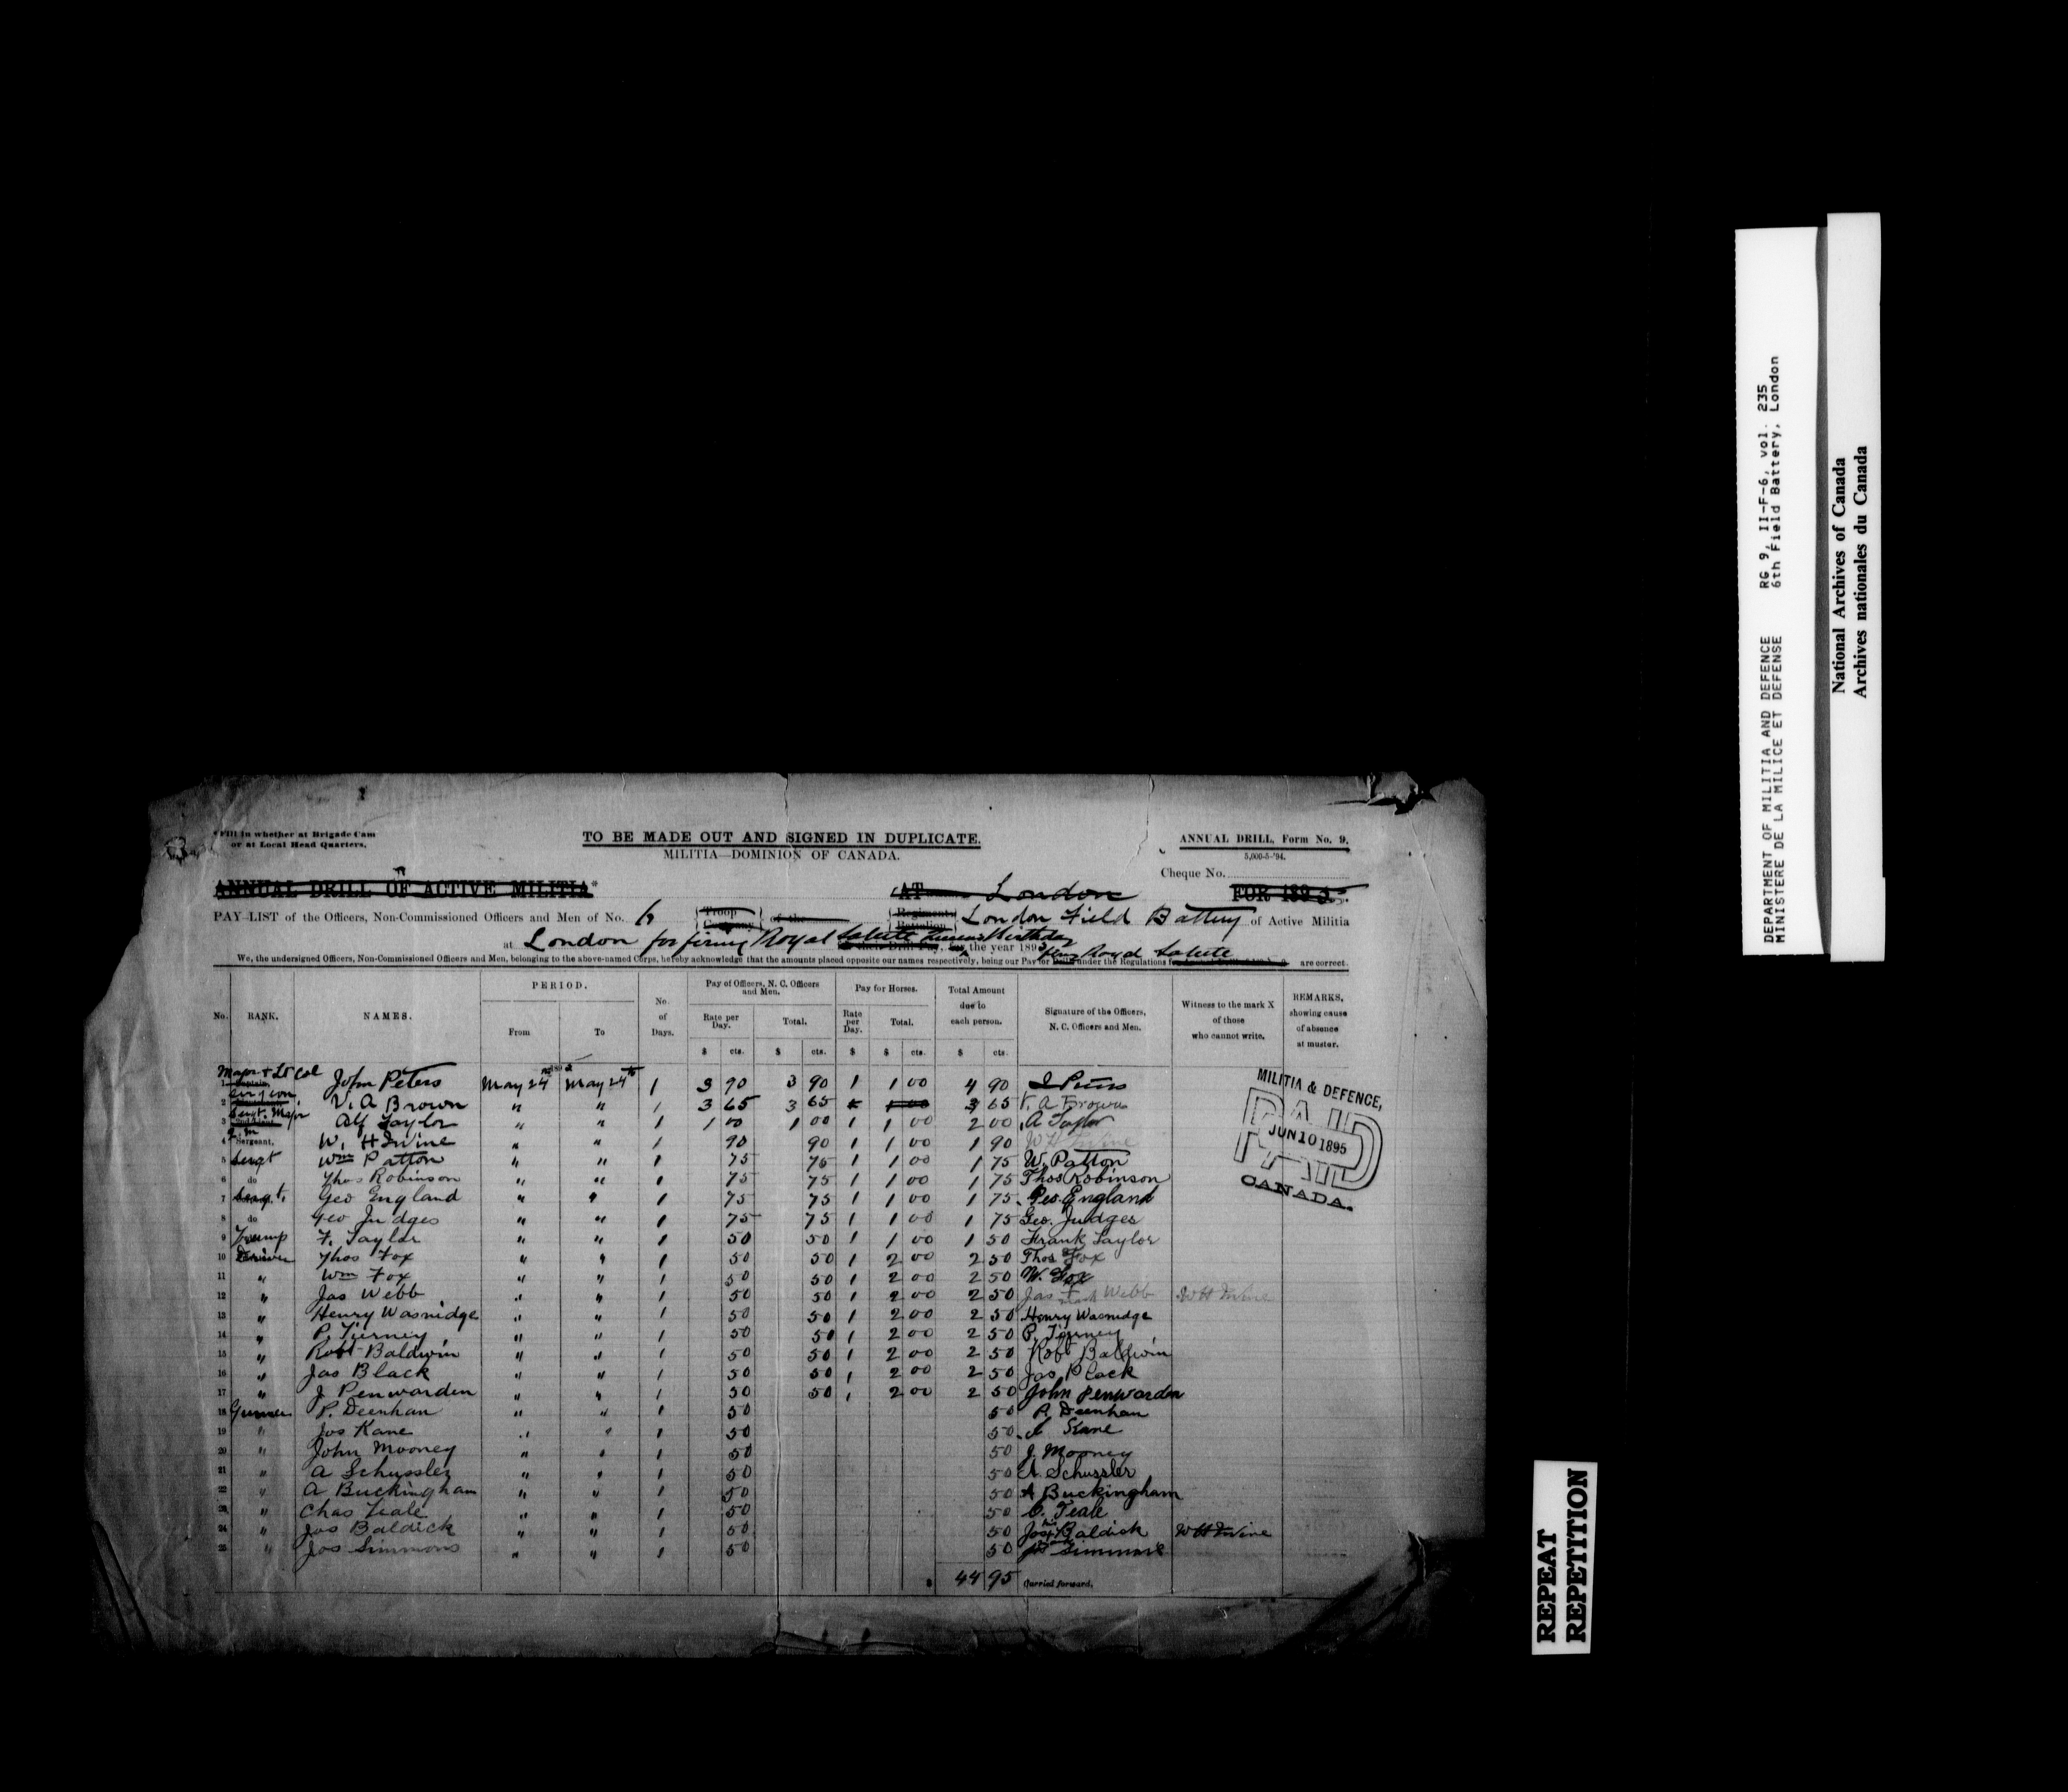 *Fill in whether at Brigade Cam
or at Local Head Quarters.
TO BE MADE OUT AND SIGNED IN DUPLICATE.
MILITIA—DOMINION OF CANADA.
ANNUAL DRILL, Form No. 9.
5,000-5-'94.
Cheque No.
ANNUAL DRILL OF ACTIVE MILITIA* AT London FOR 1895.
PAY-LIST of the Officers, Non-Commissioned Officers and Men of No. 6 {Troop Company} of the {Regiment Battalion} London Field Battery of Active Militia
at London for firing Royal Salute Queens Birthday for the year 1895
We, the undersigned Officers, Non-Commissioned Officers and Men, belonging to the above-named Corps, hereby acknowledge that the amounts placed opposite our names respectively, being our Pay for firing Royal Salute under the Regulations are correct.
No. RANK. NAMES. PERIOD. From To No. of Days. Pay of Officers, N. C. Officers and Men. Rate per Day. Total. Pay for Horses. Rate per Day. Total. Total Amount due to each person. Signature of the Officers, N. C. Officers and Men. Witness to the mark X of those who cannot write. REMARKS, showing cause of absence at muster.
$ cts. $ cts. $ $ cts. $ cts.
1 Major & Lt Col John Peters May 24th May 24th 1 3 90 3 90 1 1 00 4 90 J Peters
2 Surgeon V. A Brown " " 1 3 65 3 65 1 00 3 65 V. A Brown
3 Sergt. Major Alf Taylor " " 1 1 00 1 00 1 1 00 2 00 A Taylor
4 Q. M Sergeant, W. H Irvine " " 1 90 90 1 1 00 1 90 W H Irvine
5 Sergt Wm Patton " " 1 75 75 1 1 00 1 75 W. Patton
6 do Thos Robinson " " 1 75 75 1 1 00 1 75 Thos Robinson
7 Sergt. Geo England " " 1 75 75 1 1 00 1 75 Geo. England
8 do Geo Judges " " 1 75 75 1 1 00 1 75 Geo. Judges
9 Trump F. Taylor " " 1 50 50 1 1 00 1 50 Frank Taylor
10 Driver Thos Fox " " 1 50 50 1 2 00 2 50 Thos Fox
11 " Wm Fox " " 1 50 50 1 2 00 2 50 W. Fox
12 " Jas Webb " " 1 50 50 1 2 00 2 50 Jas X mark Webb W H Irvine
13 " Henry Wasnidge " " 1 50 50 1 2 00 2 50 Henry Wasnidge
14 " P. Tierney " " 1 50 50 1 2 00 2 50 P. Tierney
15 " Robt Baldwin " " 1 50 50 1 2 00 2 50 Robt Baldwin
16 " Jas Black " " 1 50 50 1 2 00 2 50 Jas Black
17 " J Penwarden " " 1 50 50 1 2 00 2 50 John Penwarden
18 Gunner P. Deenhan " " 1 50 50 P. Deenhan
19 " Jos Kane " " 1 50 50 J Kane
20 " John Mooney " " 1 50 50 J. Mooney
21 " A Schussler " " 1 50 50 A. Schussler
22 " A Buckingham " " 1 50 50 A Buckingham
23 " Chas Teale " " 1 50 50 C. Teale
24 " Jos Baldick " " 1 50 50 Jos X Baldick W H Irvine
25 " Jos Simmons " " 1 50 50 Jos Simmons
$ 44 95 Carried forward.
MILITIA & DEFENCE,
PAID
JUN 10 1895
CANADA.
DEPARTMENT OF MILITIA AND DEFENCE RG 9, II-F-6, vol. 235
MINISTERE DE LA MILICE ET DEFENSE 6th Field Battery, London
National Archives of Canada
Archives nationales du Canada
REPEAT
REPETITION